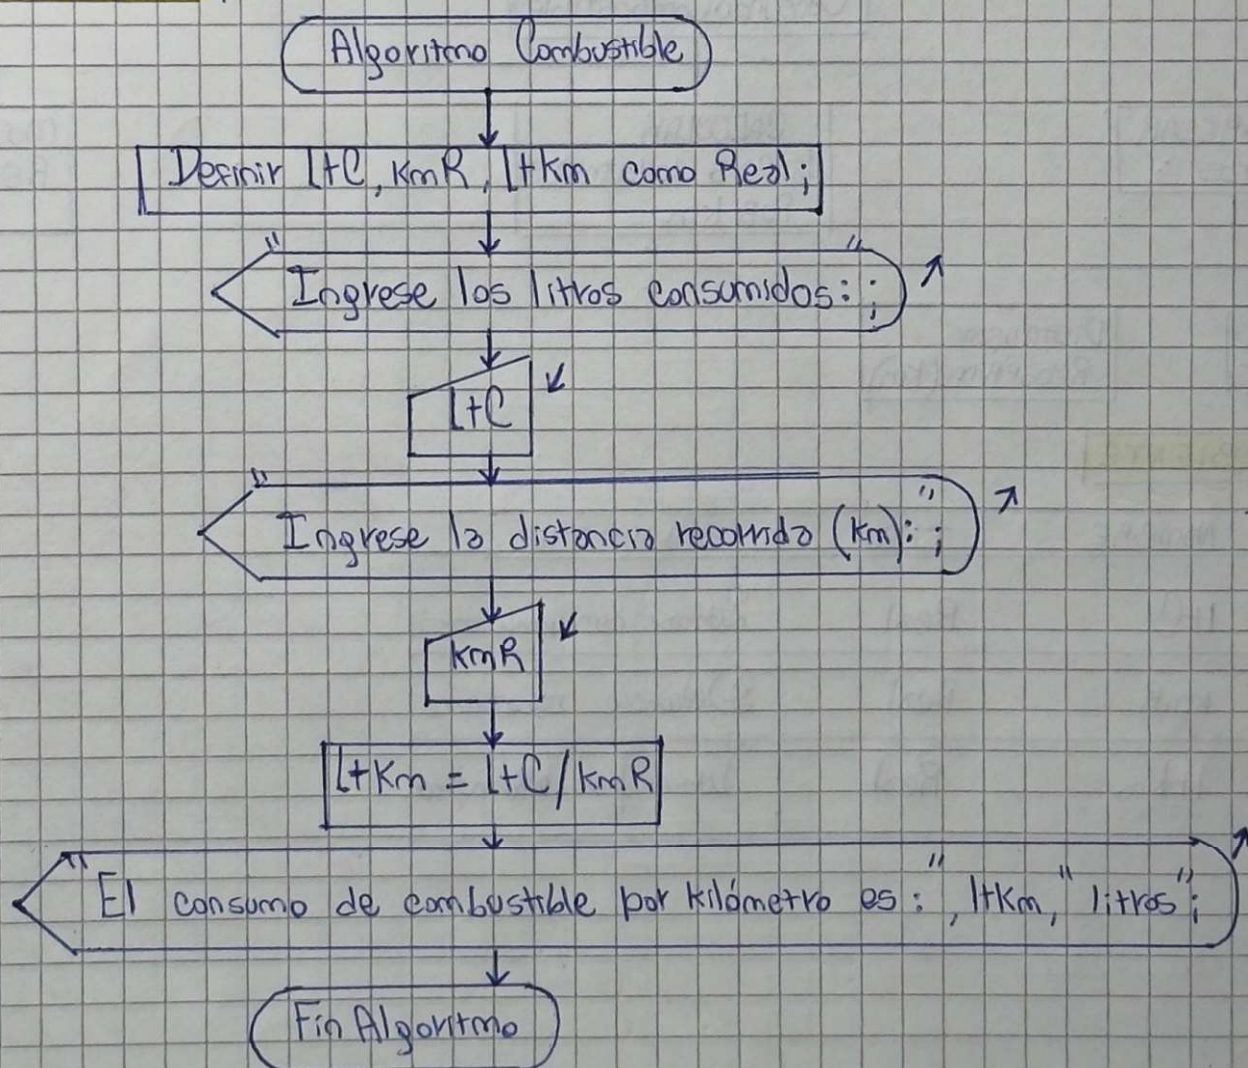 Algoritmo Combustible
Definir ltC, kmR, ltkm como Real;
"Ingrese los litros consumidos:";
ltC
"Ingrese la distancia recorrida (km):";
kmR
ltkm = ltC/kmR
"El consumo de combustible por kilómetro es:", ltkm, "litros";
Fin Algoritmo